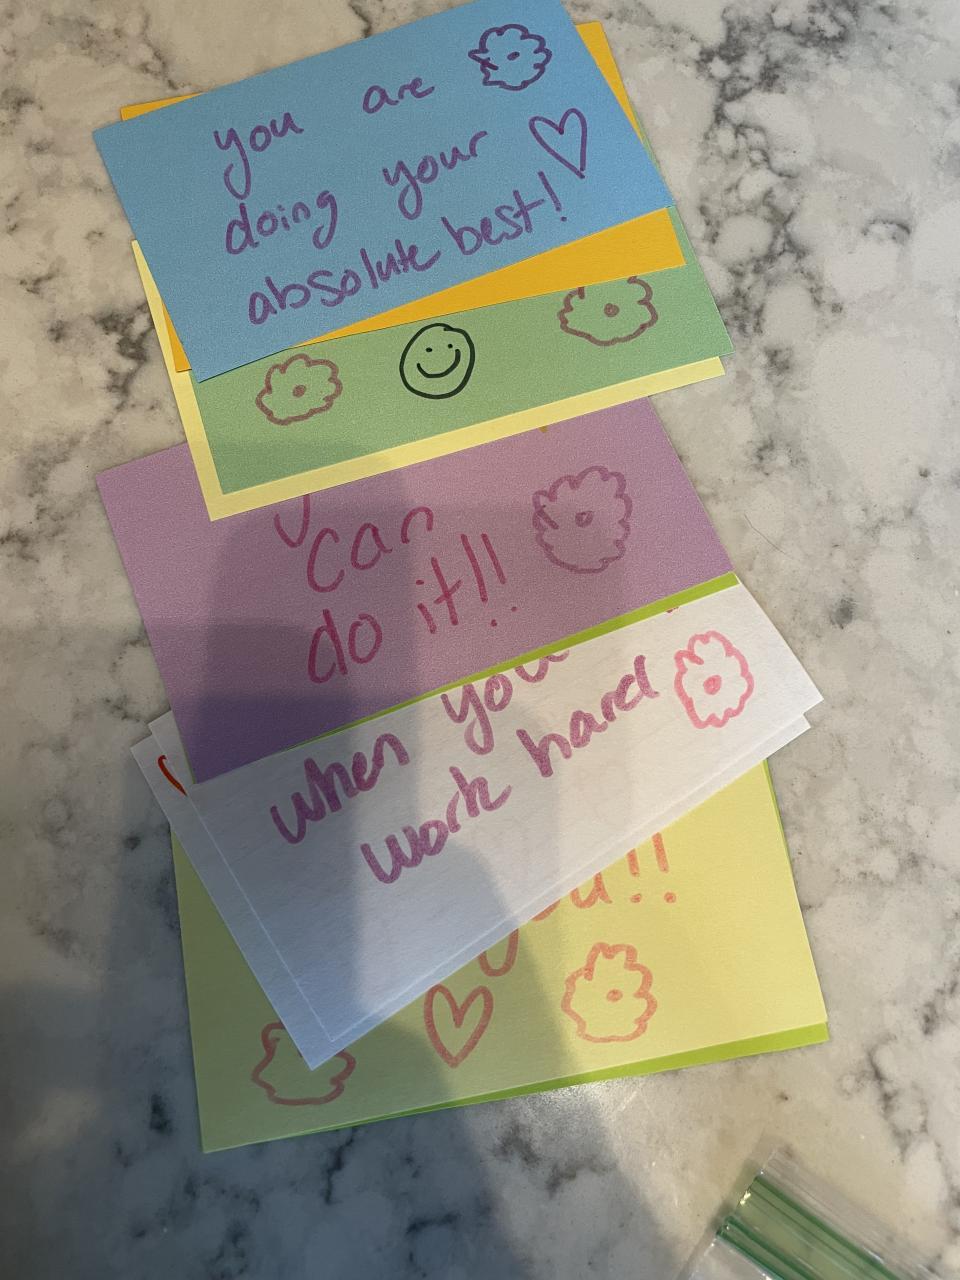 you are
doing your
absolute best!
can
do it!!
when you
work hard